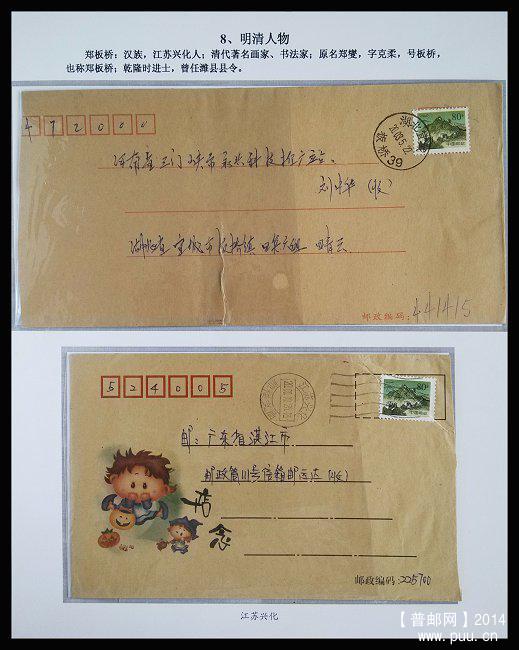 8、明清人物
郑板桥：汉族，江苏兴化人；清代著名画家、书法家；原名郑燮，字克柔，号板桥，
也称郑板桥；乾隆时进士，曾任潍县县令。
472000
80分
中国邮政
湖北
2003.5.22
板桥
39
河南省三门峡市农业科技推广站、
刘中华（收）
湖北省宜城市板桥镇
邮政编码：441415
524005
80分
中国邮政
江苏兴化
邮：广东省湛江市
邮政
号信箱邮运达（收）
邮政编码：225700
江苏兴化
【普邮网】2014
www.puu.cn